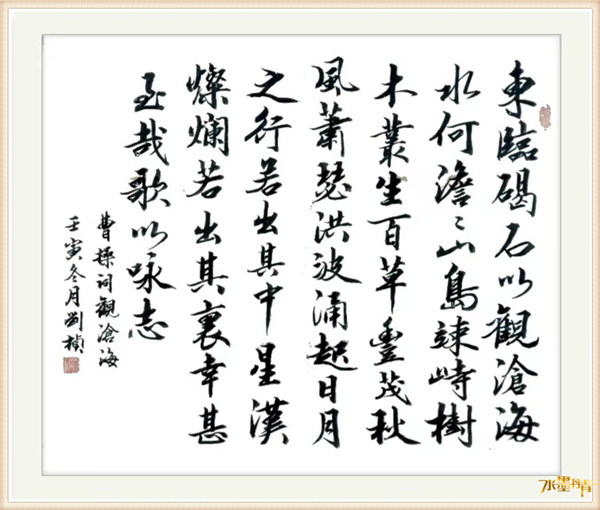 東臨碣石以觀滄海
水何澹〻山島竦峙樹
木叢生百草豐茂秋
風蕭瑟洪波涌起日月
之行若出其中星漢
燦爛若出其裏幸甚
至哉歌以咏志
曹操詞觀滄海
壬寅冬月劉楨
水墨丹青